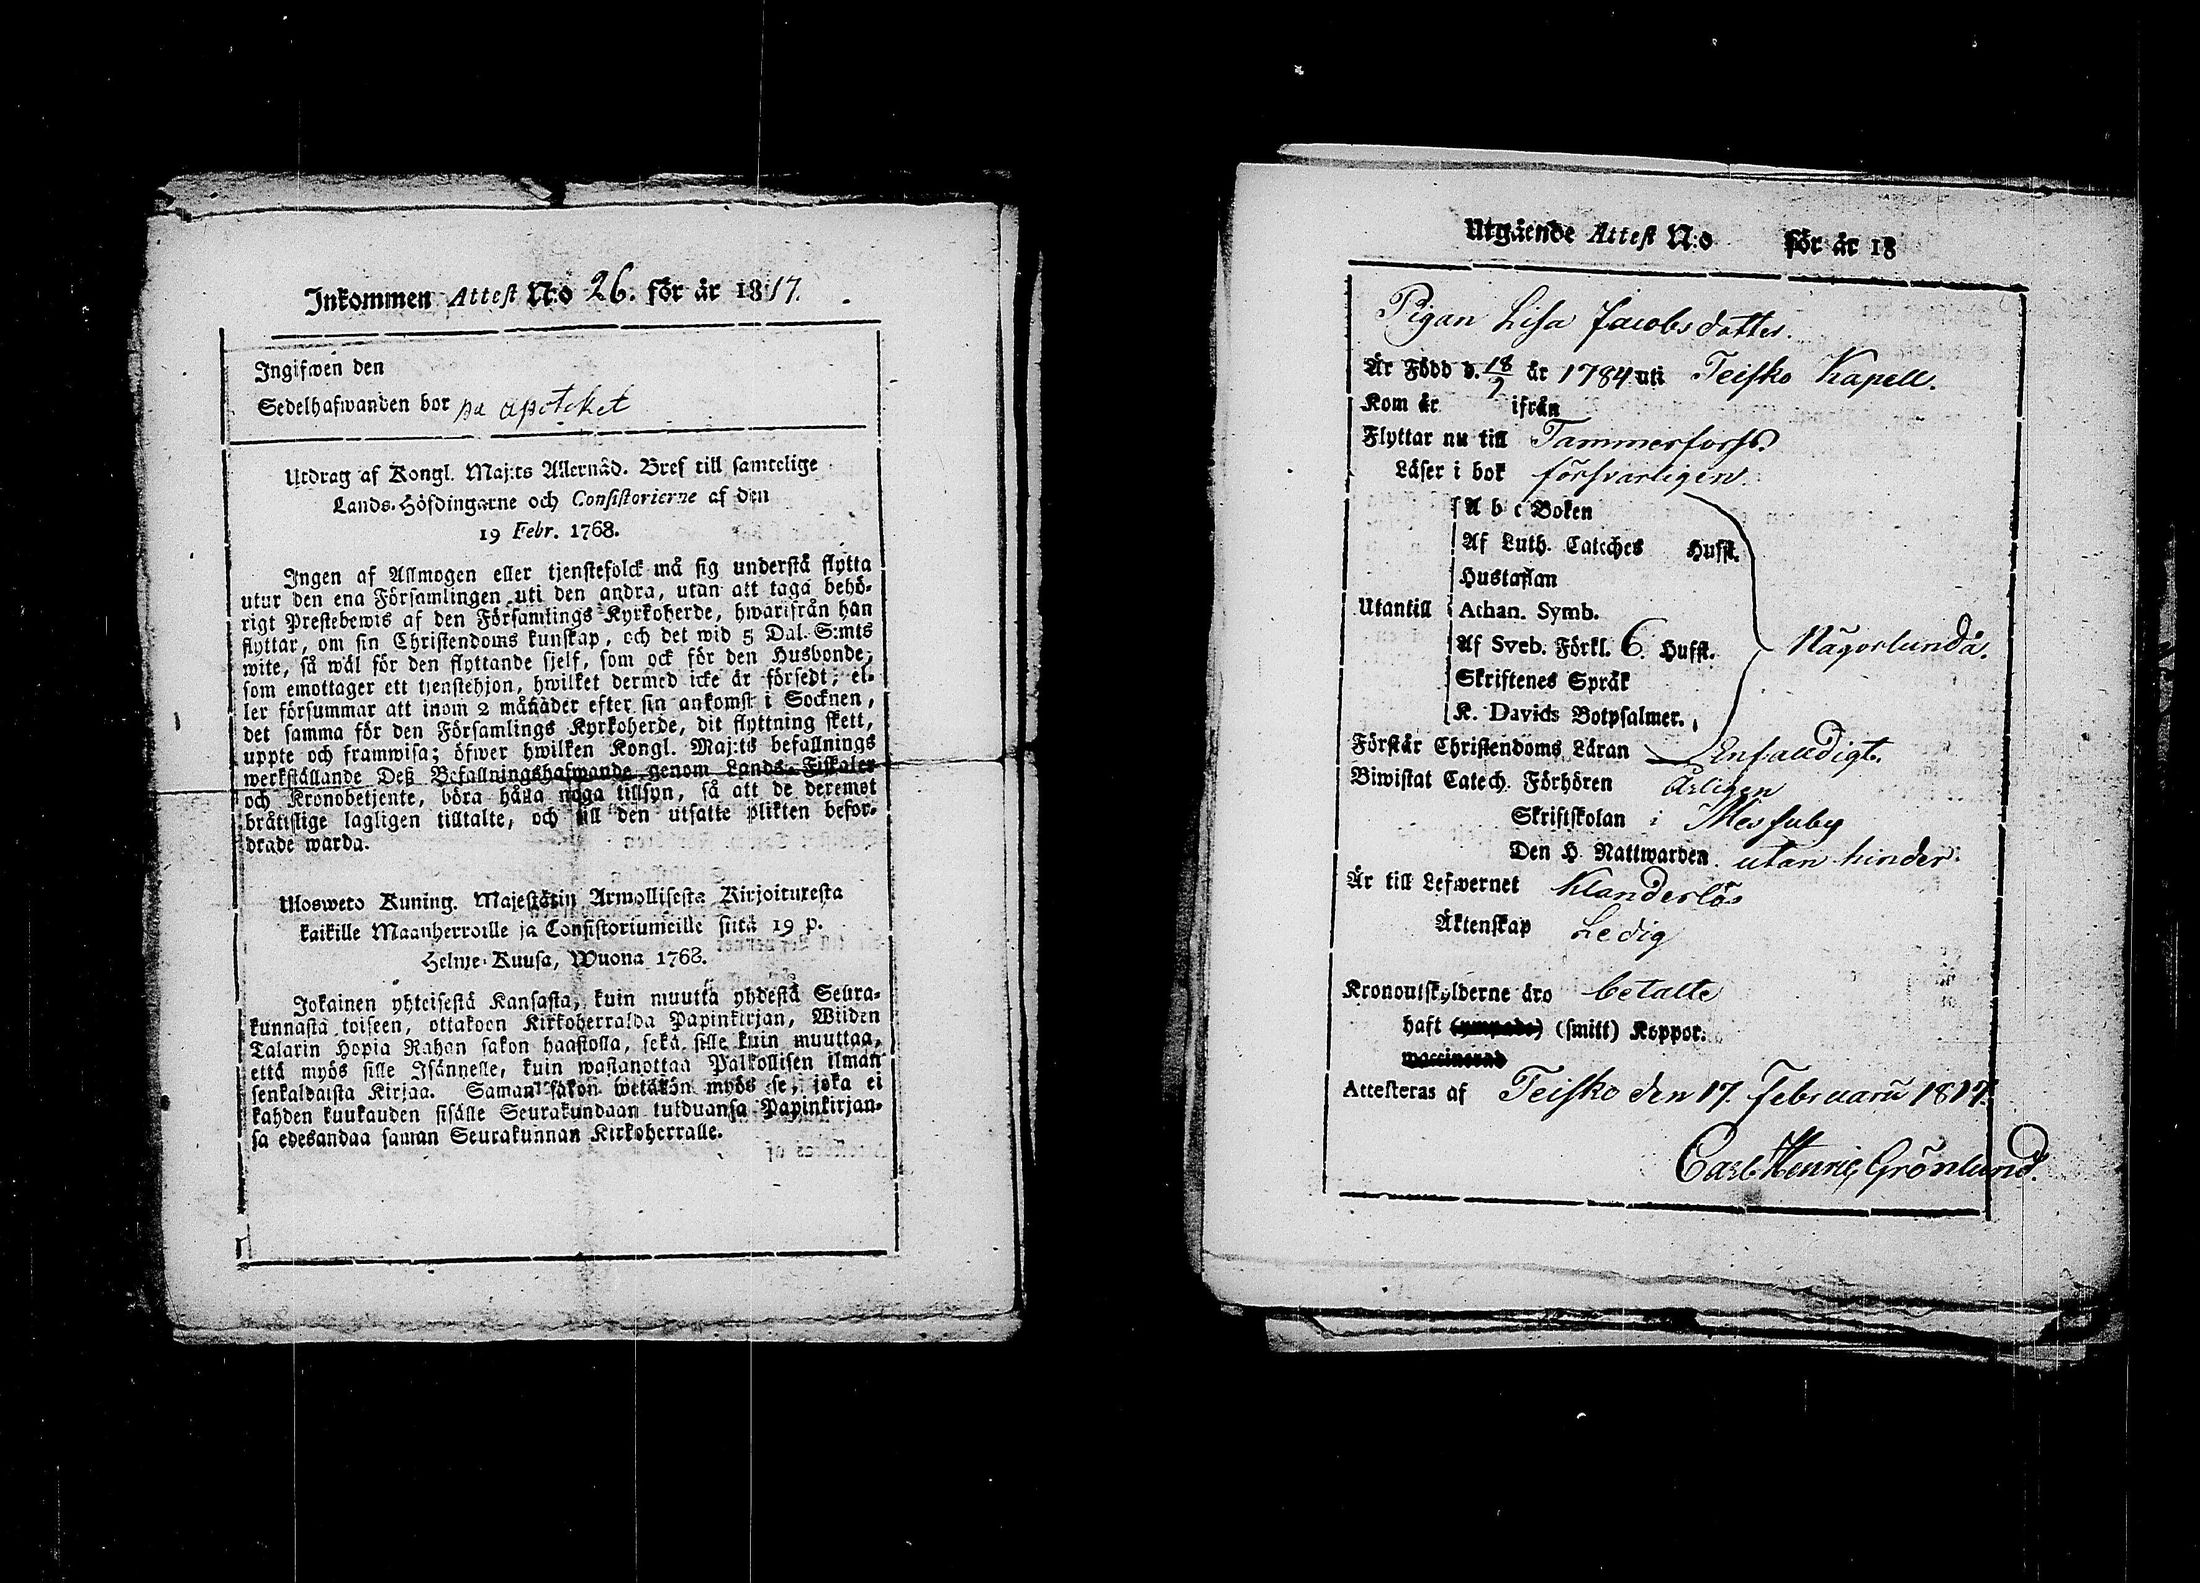 Inkommen Attest N:o 26. för år 1817.
Ingifwen den
Sedelhafwanden bor på apoteket
Utdrag af Kongl. Maj:ts Allernåd. Bref till samtelige
Lands-Höfdingarne och Consistorierne af den
19 Febr. 1768.
Ingen af Allmogen eller tjenstefolck må sig understå flytta
utur den ena Församlingen uti den andra, utan att taga behö-
rigt Prestebewis af den Församlings Kyrkoherde, hwarifrån han
flyttar, om sin Christendoms kunskap, och det wid 5 Dal. S:mts
wite, så wäl för den flyttande sjelf, som ock för den Husbonde,
som emottager ett tjenstehjon, hwilket dermed icke är försedt, el-
ler försummar att inom 2 månader efter sin ankomst i Socknen,
det samma för den Församlings Kyrkoherde, dit flyttning skett,
uppte och framwisa; öfwer hwilken Kongl. Maj:ts befallnings
werkställande Deß Befallningshafwande genom Lands-Fiskaler
och Kronobetjente, böra hålla noga tillsyn, så att de deremot
bråtislige lagligen tilltalte, och till den utsatte plikten befor-
drade warda.
Ulosweto Kuning. Majestätin Armollisesta Kirjoituxesta
kaikille Maanherroille ja Consistoriumeille siitä 19 p.
Helme-Kuusa, Wuona 1768.
Jokainen yhteisestä Kansasta, kuin muutta yhdestä Seura-
kunnasta toiseen, ottakoon Kirkoherralda Papinkirjan, Wiiden
Talarin Hopia Rahan sakon haastolla, sekä sille kuin muuttaa,
että myös sille Isännelle, kuin wastanottaa Palkollisen ilman
senkaldaista Kirjaa. Saman sakon wetäkön myös se, joka ei
kahden kuukauden sisälle Seurakundaan tulduansa Papinkirjan-
sa edesandaa saman Seurakunnan Kirkoherralle.
Utgående Attest N:o för år 18
Pigan Lisa Jacobsdotter.
Är Född d. 18/9 år 1784 uti Teisko Kapell.
Kom år ifrån
Flyttar nu till Tammerforss.
Läser i bok försvarligen
A b c Boken
Af Luth. Cateches Hufst.
Hustaflan
Utantill Athan. Symb.
Af Sveb. Förkl. 6. Hufst. Någorlunda.
Skriftenes Språk
K. Davids Botpsalmer.
Förstår Christendoms Läran Enfaldigt.
Biwistat Catech. Förhören Årligen
Skriftskolan i Messuby
Den H. Nattwarden utan hinder.
Är till Lefwernet Klanderlös
Äktenskap Ledig
Kronoutskylderne äro betalte
haft (ympade) (smitt) Koppor.
waccinerad
Attesteras af Teisko den 17 Februarii 1817.
Carl Henric Grönlund.